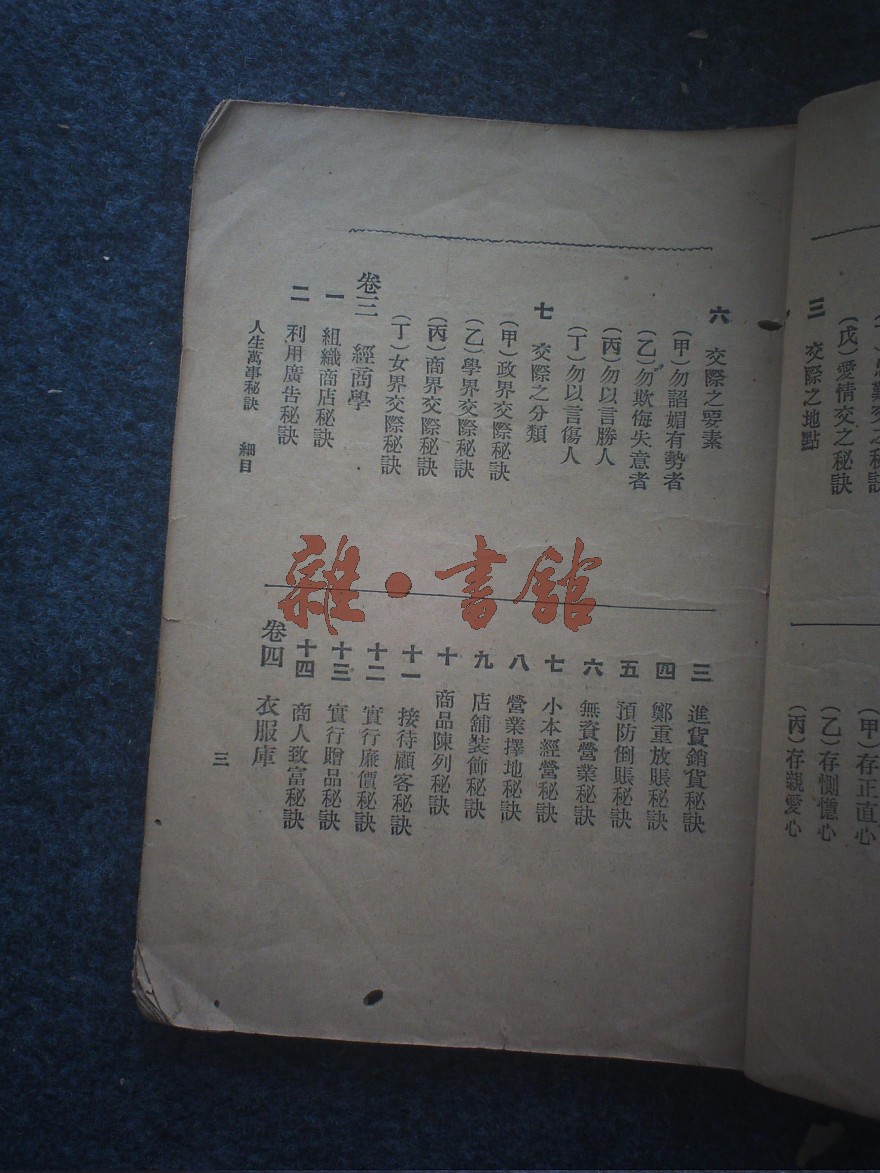 三 交際之地點
(戊)愛情交之秘訣
(甲)存正直心
(乙)存惻憶心
(丙)存親愛心
六 交際之要素
(甲)勿諂媚有勢者
(乙)勿欺侮失意者
(丙)勿以言勝人
(丁)勿以言傷人
七 交際之分類
(甲)政界交際秘訣
(乙)學界交際秘訣
(丙)商界交際秘訣
(丁)女界交際秘訣
卷三 經商學
一 組織商店秘訣
二 利用廣告秘訣
三 進貨銷貨秘訣
四 鄭重放賬秘訣
五 預防倒賬秘訣
六 無資營業秘訣
七 小本經營秘訣
八 營業擇地秘訣
九 店舖裝飾秘訣
十 商品陳列秘訣
十一 接待顧客秘訣
十二 實行廉價秘訣
十三 實行贈品秘訣
十四 商人致富秘訣
卷四 衣服庫
人生萬事秘訣 細目
三
雜·書館